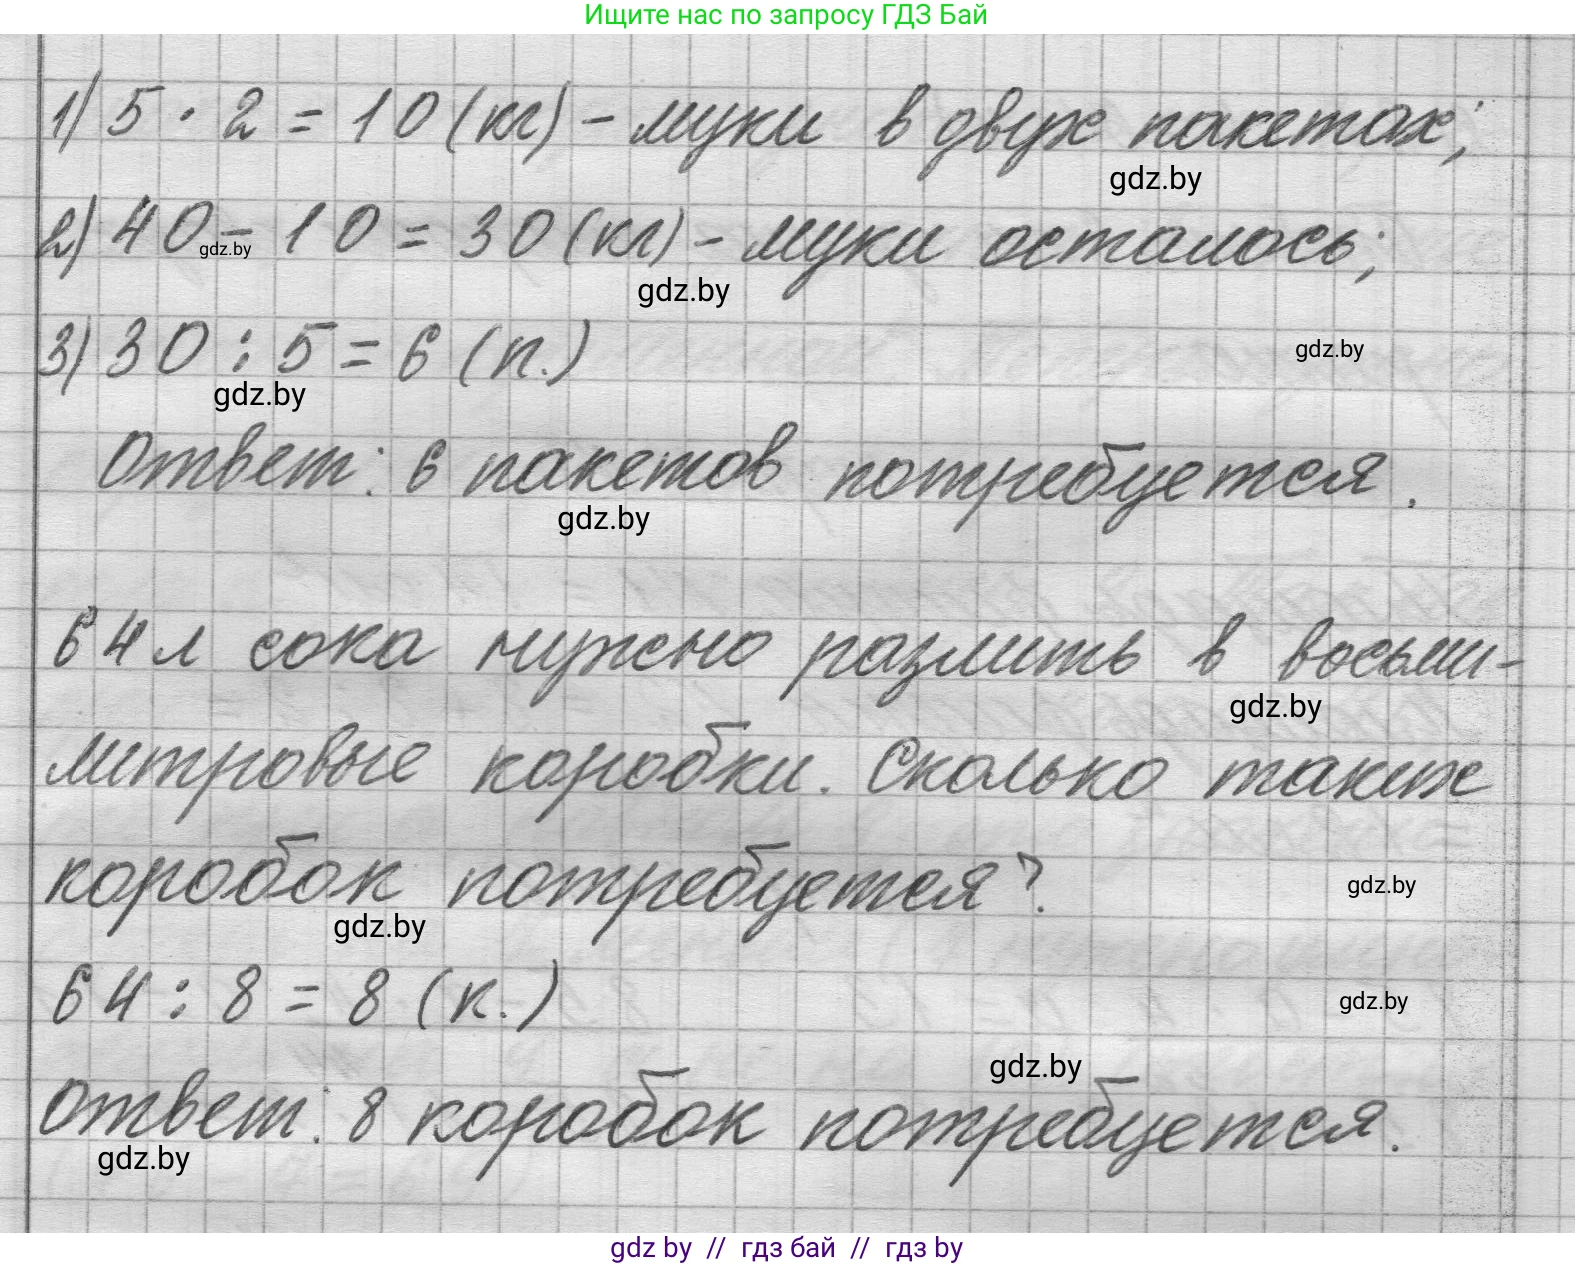 Ищите нас по запросу ГДЗ Бай
1) 5 · 2 = 10 (кг) - муки в двух пакетах;
gdz.by
2) 40 - 10 = 30 (кг) - муки осталось;
gdz.by
gdz.by
3) 30 : 5 = 6 (п.)
gdz.by
gdz.by
Ответ: 6 пакетов потребуется.
gdz.by
64 л сока нужно разлить в восьми-
gdz.by
литровые коробки. Сколько таких
коробок потребуется?
gdz.by
gdz.by
64 : 8 = 8 (к.)
gdz.by
gdz.by
Ответ: 8 коробок потребуется.
gdz.by
gdz by // гдз бай // гдз by